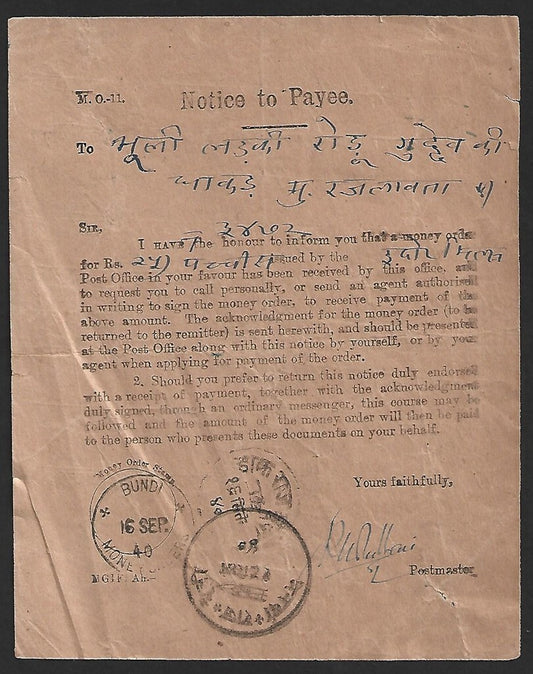 M. O.-11.
Notice to Payee.
To भूली लड़की रोडू गुद्देव की
धाकड़ मु. रजलावता
SIR,
३४७२
I HAVE the honour to inform you that a money orde
for Rs. २५) पच्चीस issued by the इन्दोर मिल्स
Post Office in your favour has been received by this office, an
to request you to call personally, or send an agent authorised
in writing to sign the money order, to receive payment of the
above amount. The acknowledgment for the money order (to be
returned to the remitter) is sent herewith, and should be presented
at the Post Office along with this notice by yourself, or by your
agent when applying for payment of the order.
2. Should you prefer to return this notice duly endorsed
with a receipt of payment, together with the acknowledgment
duly signed, through an ordinary messenger, this course may be
followed and the amount of the money order will then be paid
to the person who presents these documents on your behalf.
Money Order Stamp
Yours faithfully,
BUNDI
16 SEP.
40
MONEY
Postmaster
MGIP, Ah.